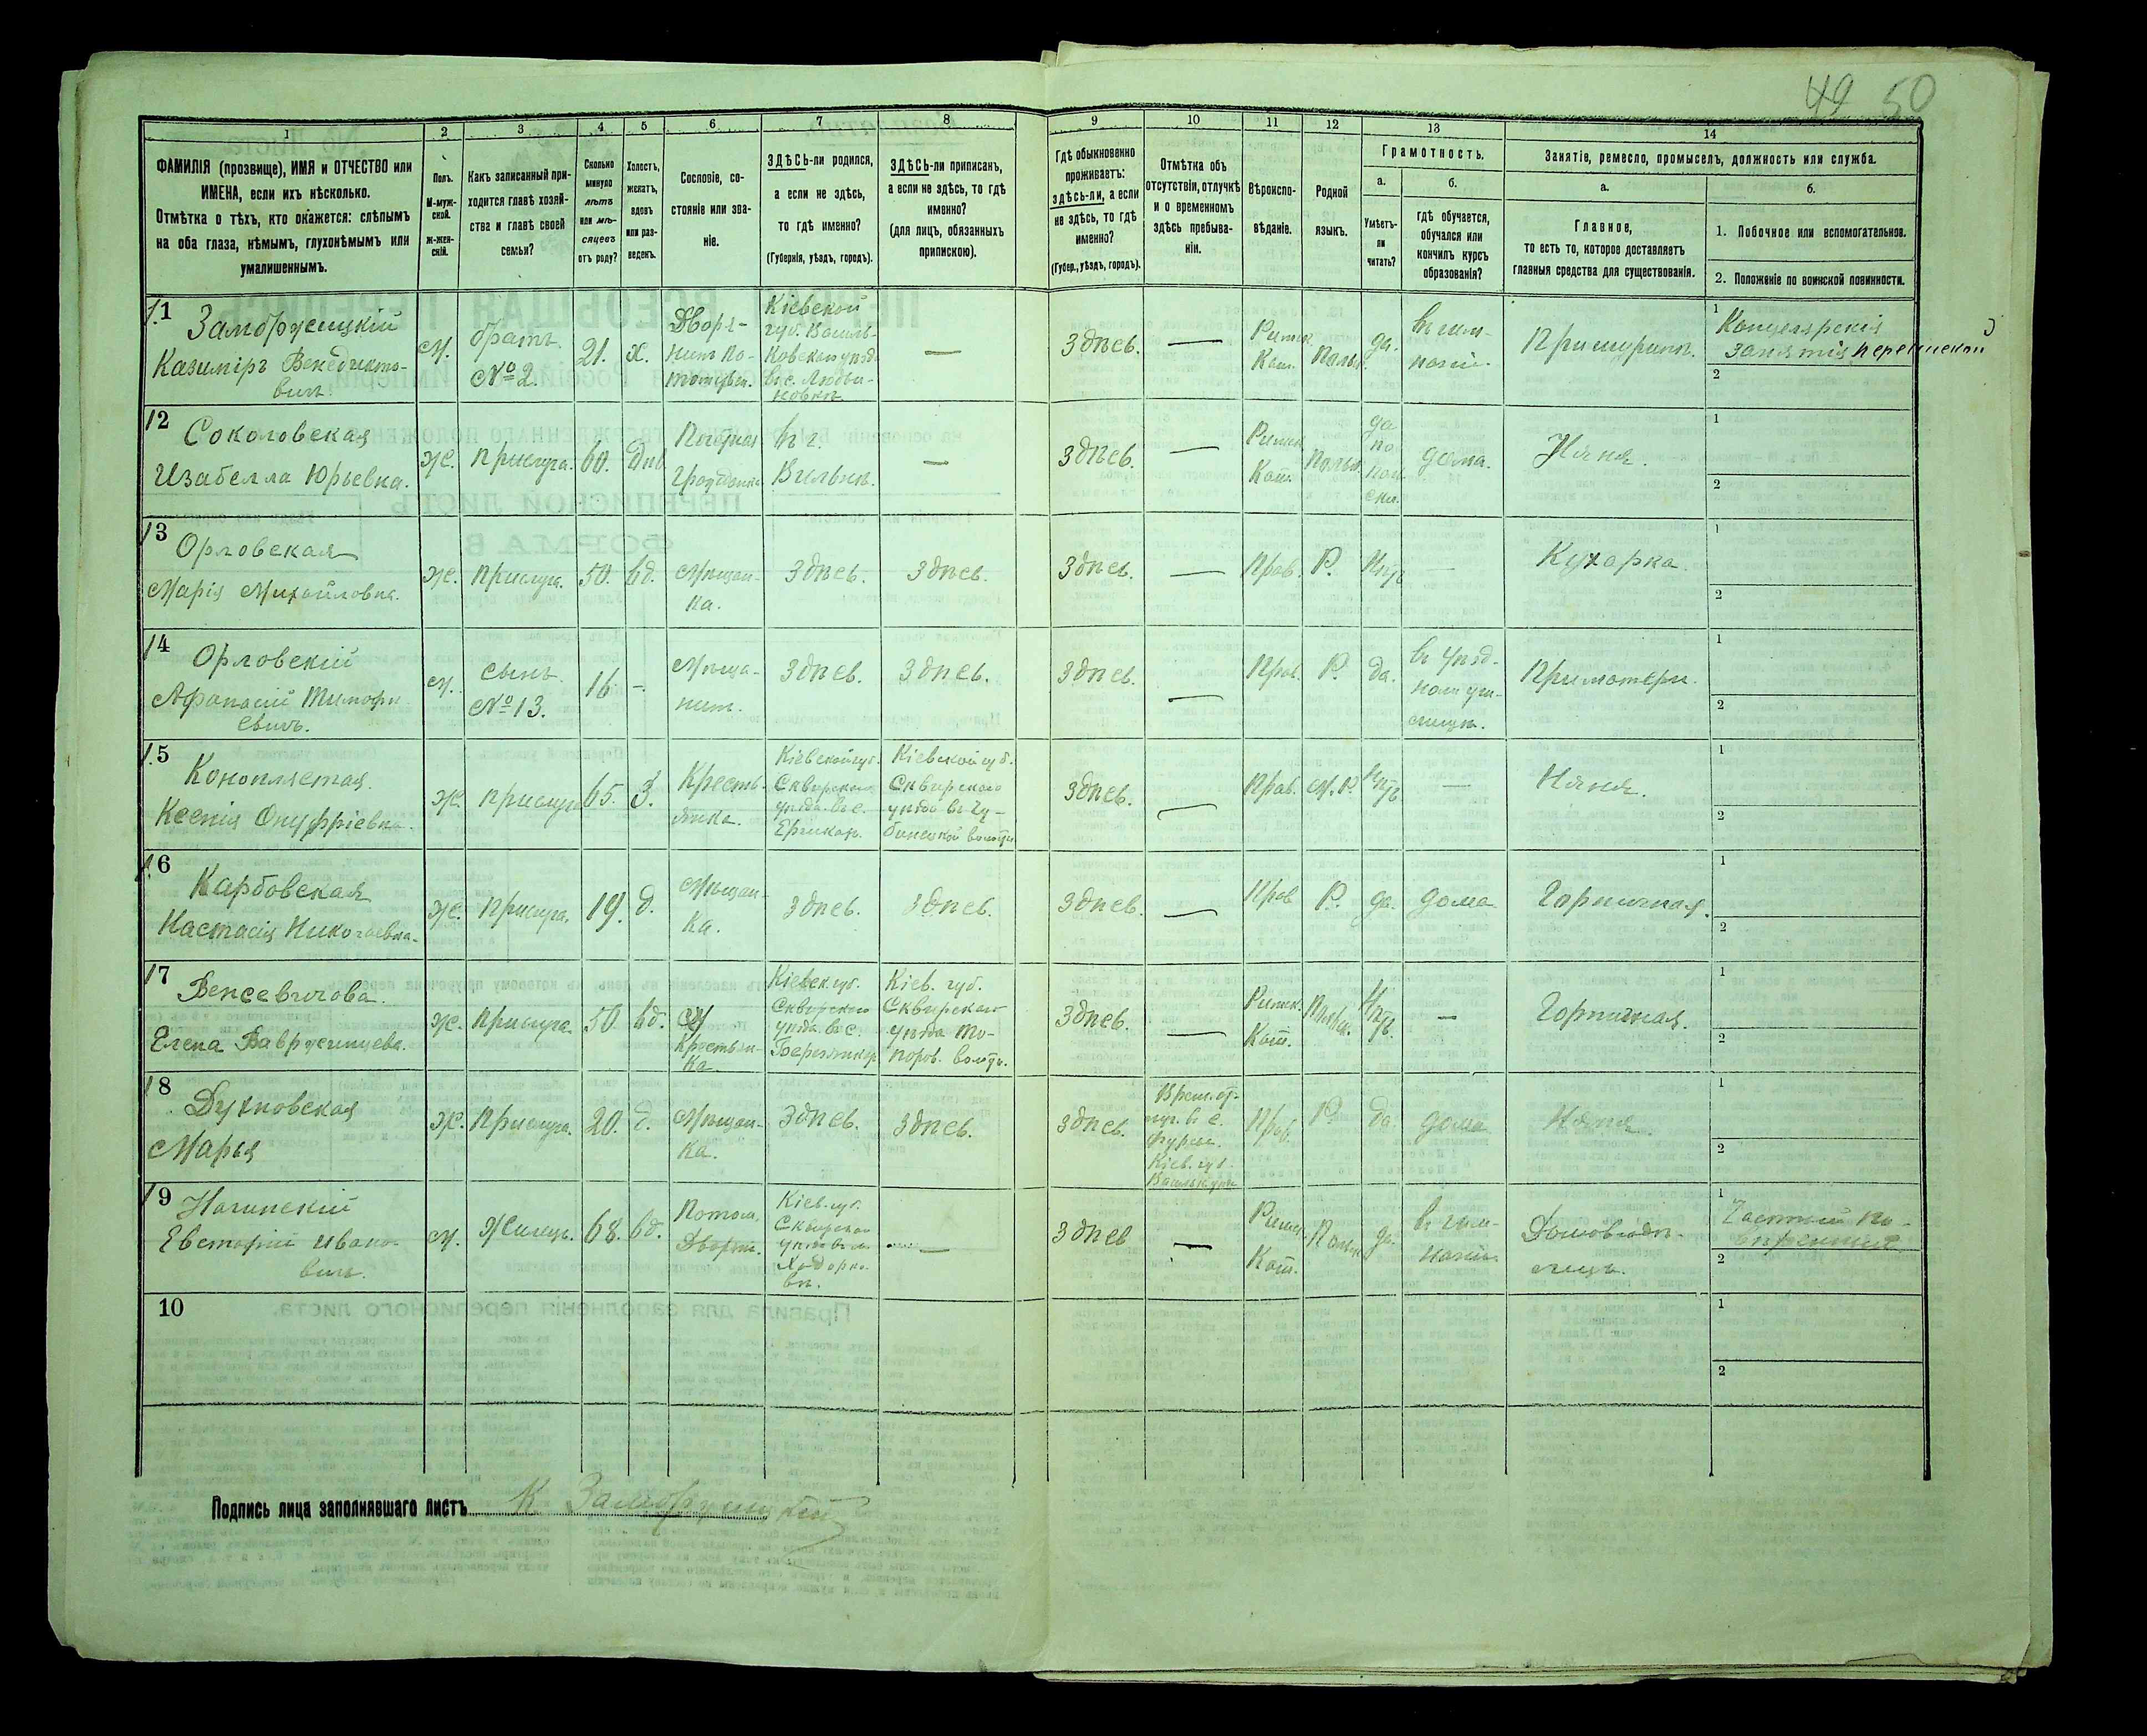 49 50
1 2 3 4 5 6 7 8 9 10 11 12 13 14
ФАМИЛІЯ (прозвище), ИМЯ и ОТЧЕСТВО или
ИМЕНА, если ихъ нѣсколько.
Отмѣтка о тѣхъ, кто окажется: слѣпымъ
на оба глаза, нѣмымъ, глухонѣмымъ или
умалишеннымъ.
Полъ.
М-муж-
ской.
Ж-жен-
скій.
Какъ записанный при-
ходится главѣ хозяй-
ства и главѣ своей
семьи?
Сколько
минуло
лѣтъ
или мѣ-
сяцевъ
отъ роду?
Холостъ,
женатъ,
вдовъ
или раз-
веденъ.
Сословіе, со-
стояніе или зва-
ніе.
ЗДѢСЬ-ли родился,
а если не здѣсь,
то гдѣ именно?
(Губернія, уѣздъ, городъ).
ЗДѢСЬ-ли приписанъ,
а если не здѣсь, то гдѣ
именно?
(для лицъ, обязанныхъ
припискою).
Гдѣ обыкновенно
проживаетъ:
здѣсь-ли, а если
не здѣсь, то гдѣ
именно?
(Губер., уѣздъ, городъ).
Отмѣтка объ
отсутствіи, отлучкѣ
и о временномъ
здѣсь пребыва-
ніи.
Вѣроиспо-
вѣданіе.
Родной
языкъ.
Грамотность.
а.
Умѣетъ-
ли
читать?
б.
гдѣ обучается,
обучался или
кончилъ курсъ
образованія?
Занятіе, ремесло, промыселъ, должность или служба.
а.
Главное,
то есть то, которое доставляетъ
главныя средства для существованія.
б.
1. Побочное или вспомогательное.
2. Положеніе по воинской повинности.
11
Казиміръ Венедикто-
вичъ.
м.
братъ
№ 2.
21.
х.
Дворя-
нинъ По-
Кіевской
губ.
—
Здѣсь.
—
Римск.
Кат.
Польск.
да.
въ гим-
назіи.
1
Канцелярскія
занятія перепиской
2
12
Соколовская
Изабелла Юрьевна.
ж.
прислуга.
60.
Почетная
Гражданка
въ г.
Вильнѣ.
—
Здѣсь.
—
Римск.
Кат.
Польск.
да
по
поль
ски.
дома.
Няня.
1
2
13
Орловская
Марія Михайловна.
ж.
прислуга.
50.
вд.
Мѣщан-
ка.
Здѣсь.
Здѣсь.
Здѣсь.
—
Прав.
Р.
Нѣтъ
—
Кухарка.
1
2
14
Орловскій
Афанасій Тимофѣ
евичъ.
м.
сынъ
№ 13.
16
—
Мѣща-
нинъ.
Здѣсь.
Здѣсь.
Здѣсь.
—
Прав.
Р.
да.
въ Уѣзд-
номъ учи-
лищѣ.
При матери.
1
2
15
Коноплястая
Ксенія Онуфріевна.
ж.
прислуга
65.
З.
Кресть-
янка.
Кіевской губ.
Сквирскаго
уѣзда въ с.
Кіевской губ.
Сквирскаго
уѣзда
Здѣсь.
—
Прав.
М. Р.
Нѣтъ
—
Няня.
1
2
16
Карбовская
Настасія Николаевна.
ж.
прислуга.
19.
д.
Мѣщан-
ка.
Здѣсь.
Здѣсь.
Здѣсь.
—
Прав
Р.
да.
дома
Горничная.
1
2
17
Венсевичова
Елена Вавржинцева.
ж.
прислуга.
50.
вд.
Крестьян-
ка.
Кіевск. губ.
Сквирскаго
уѣзда въ с.
Кіев. губ.
Сквирскаго
уѣзда То-
поров. волости.
Здѣсь.
—
Римск.
Кат.
Польск.
Нѣтъ.
—
Горничная.
1
2
18
Духновская
Марья
ж.
прислуга.
20.
д.
Мѣщан-
ка.
Здѣсь.
Здѣсь.
Здѣсь.
въ с.
Кіев. губ.
Прав.
Р.
да.
дома
Няня.
1
2
19
Евстафій Ивано-
вичъ.
м.
Жилецъ.
68.
вд.
Потом.
Дворян.
Кіев. губ.
Сквирскаго
—
Здѣсь
—
Римск.
Кат.
Польск.
да.
въ гим-
назіи.
Домовладѣ-
лецъ.
1
2
10
1
2
Подпись лица заполнявшаго листъ